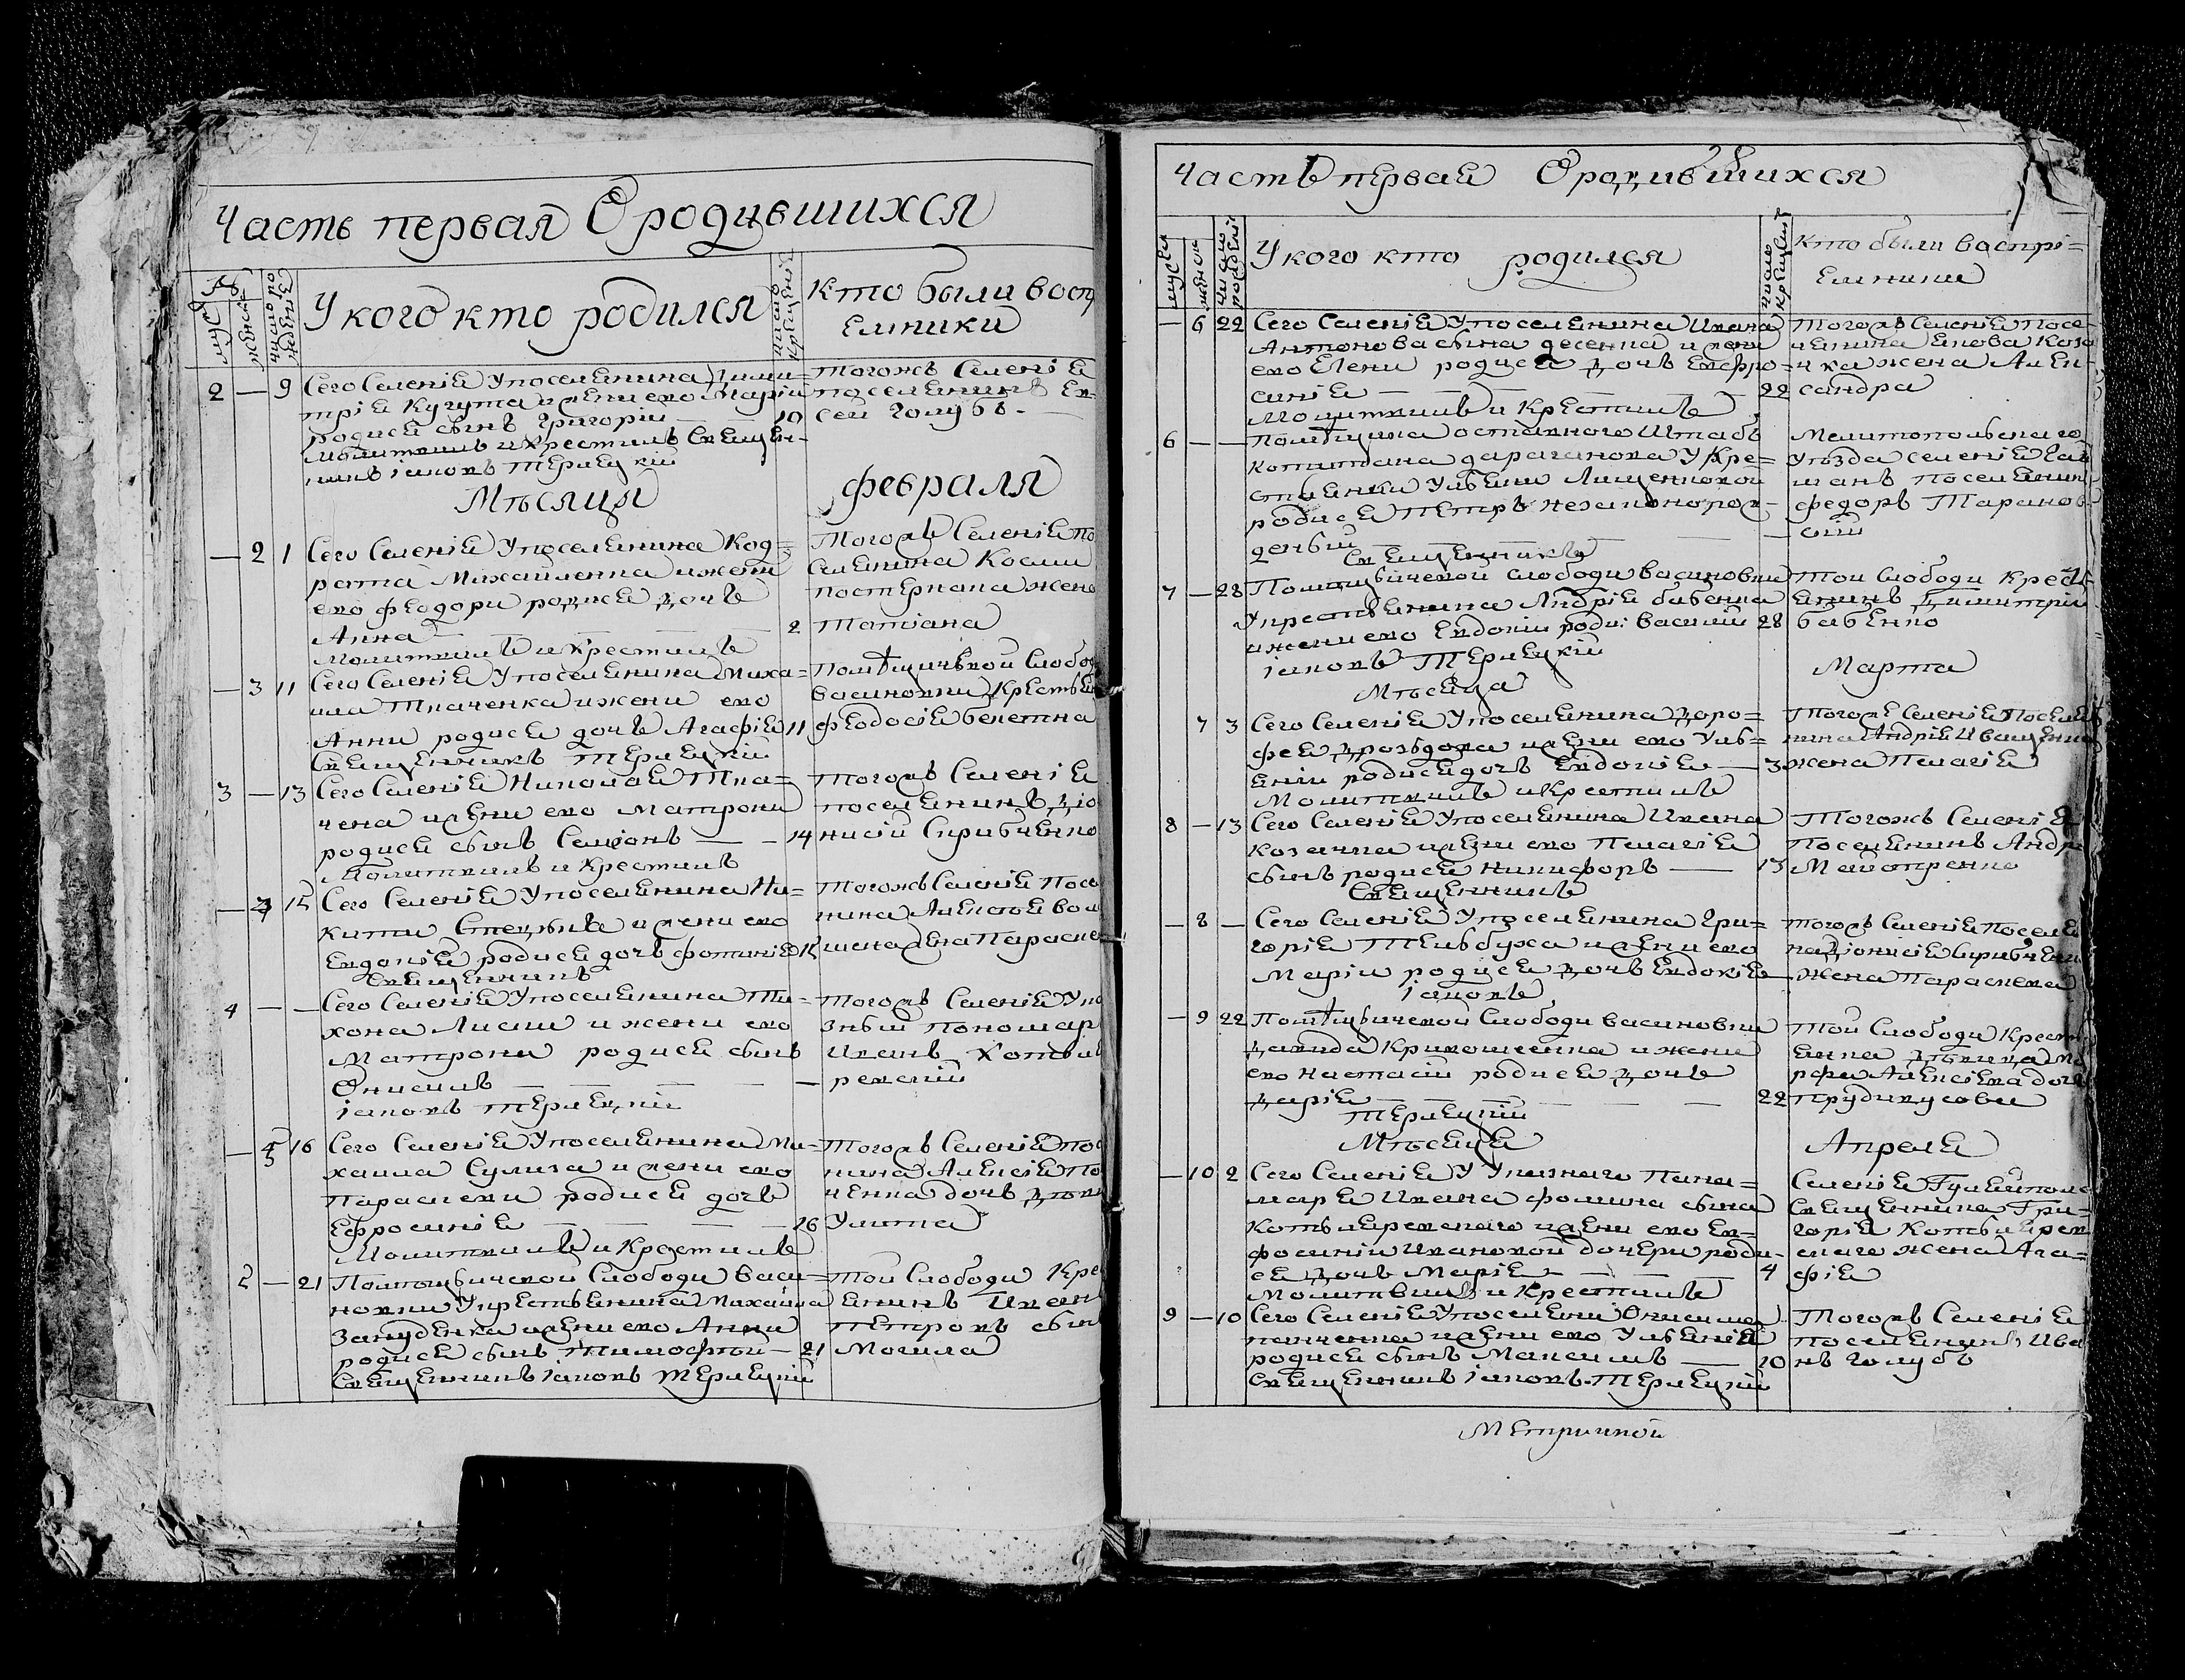 Часть первая О родившихся
муск
женск
У кого кто родился
число крещен
Кто были восп
емники
2 — 9 Сего Селенія У поселянина Дими=
трія Кугута и жени его Маріи
родися сынъ Григорій 10
Молитвилъ и крестилъ Священ-
никъ Іаковъ Терлецкій
Тогожъ Селенія
поселянинъ Ев
сей Голубъ
Мѣсяца Февраля
— 2 1 Сего Селенія У поселянина Код=
рата Михайленка и жени
его Феодори родися дочь
Анна 2
Молитвилъ и крестилъ
Тогожъ Селенія по
селянина Косми
жена
Татіана
— 3 11 Сего Селенія У поселянина Миха=
ила Ткаченка и жени его
Анни родися дочь Агафія 11
Священникъ Терлецкій
Помѣщичьей Слобод
Васиновки Крестьян
Феодосія
3 — 13 Сего Селенія Николая Тка=
чена и жени его Матрони
родися сынъ Семіонъ — 14
Молитвилъ и крестилъ
Тогожъ Селенія
поселянинъ Діо
нисій Скрибченко
— 4 15 Сего Селенія У поселянина Ни=
кити и жени его
Евдокіи родися дочь Фотинія 15
Священникъ
Тогожъ Селенія Посе
нина
Параске
4 — — Сего Селенія У поселянина Ти=
хона Лисии и жени его
Матрони родися сынъ
Онисимъ —
Іаковъ Терлецкій
Тогожъ Селенія Ука
зный Пономар
Иванъ Котлья
ревскій
— 5 16 Сего Селенія У поселянина Ми=
хаила Сулига и жени его
Параскеви родися дочь
Ефросинія 16
Молитвилъ и крестилъ
Тогожъ Селенія пос
нина Алексія По
ченка дочь
Улита
2 — 21 Помѣщичьеской Слободи Васи=
новки У крестьянина Михайла
Запуденка и жени его Анни
родися сынъ Тимофей — 21
Священникъ Іаковъ Терлецкій
Той Слободи Кре
янинъ Иван
Петровъ сын
Могила
Часть первая О родившихся
муск
женск
число рожденій
У кого кто родился
число крещенія
Кто были воспрі=
емники
— 6 22 Сего Селенія У поселянина Ивана
Антонова сына и жени
его Елени родися дочь Евфро=
синія 22
Молитвилъ и крестилъ
Тогожъ Селенія Посе-
лянина Коза
ка жена Алек-
сандра
6 — — Помѣщика оставного Штабъ
Капитана Дараганова У Кре=
стьянки Ульяни
родися Петръ незаконорож-
деный —
Священникъ
Мелитопольскаго
Уѣзда селенія
поселянинъ
Федоръ Таранов
скій
7 — 28 Помѣщичьеской слободи Васиновки
У крестьянина Андрія Бабенка
и жени его Евдокіи роди: Василій 28
Іаковъ Терлецкій
Той Слободи Крест
янинъ Димитрій
Бабенко
Мѣсяца Марта
7 3 Сего Селенія У поселянина Доро=
фея Дроздова и жени его Уль=
яни родися дочь Евдокія — 3
Молитвилъ и крестилъ
Тогожъ Селенія Поселя
нина Андрія Иващенка
жена Пелагія
8 — 13 Сего Селенія У поселянина Ивана
Козачка и жени его Пелагіи
сынъ родися Никифоръ — 13
Священникъ
Тогожъ Селенія
Поселянинъ Андр
Майстренко
— 8 — Сего Селенія У поселянина Гри=
горія Тельбуха и жени его
Маріи родися дочь Евдокія —
Іаковъ
Тогожъ Селенія Поселя
на Діонисія Скрибчен
жена Параскева
— 9 22 Помѣщичьеской Слободи Васиновки
Давида Кривошеенка и жени
его Настасіи родися дочь
Дарія 22
Терлецкій
Той Слободи Крест
янина Ма
рфа Алексіева дочь
Прудикусова
Мѣсяца Апреля
— 10 2 Сего Селенія У Указнаго Пана=
маря Ивана Фомина сына
Котьляревскаго и жени его Ев=
фосиніи Ивановой дочери роди-
ся дочь Марія 4
Молитвилъ и Крестилъ
Селенія Гуляйполе
Священника Гри=
горія Котьлярев
скаго жена Ага=
фія
9 — 10 Сего Селенія У поселяни Онисима
панченка и жени его Ульянія
родися сынъ Максимъ — 10
Священникъ Іаковъ Терлецкій
Тогожъ Селенія
поселянинъ Ива
нъ Голубъ
Метрической